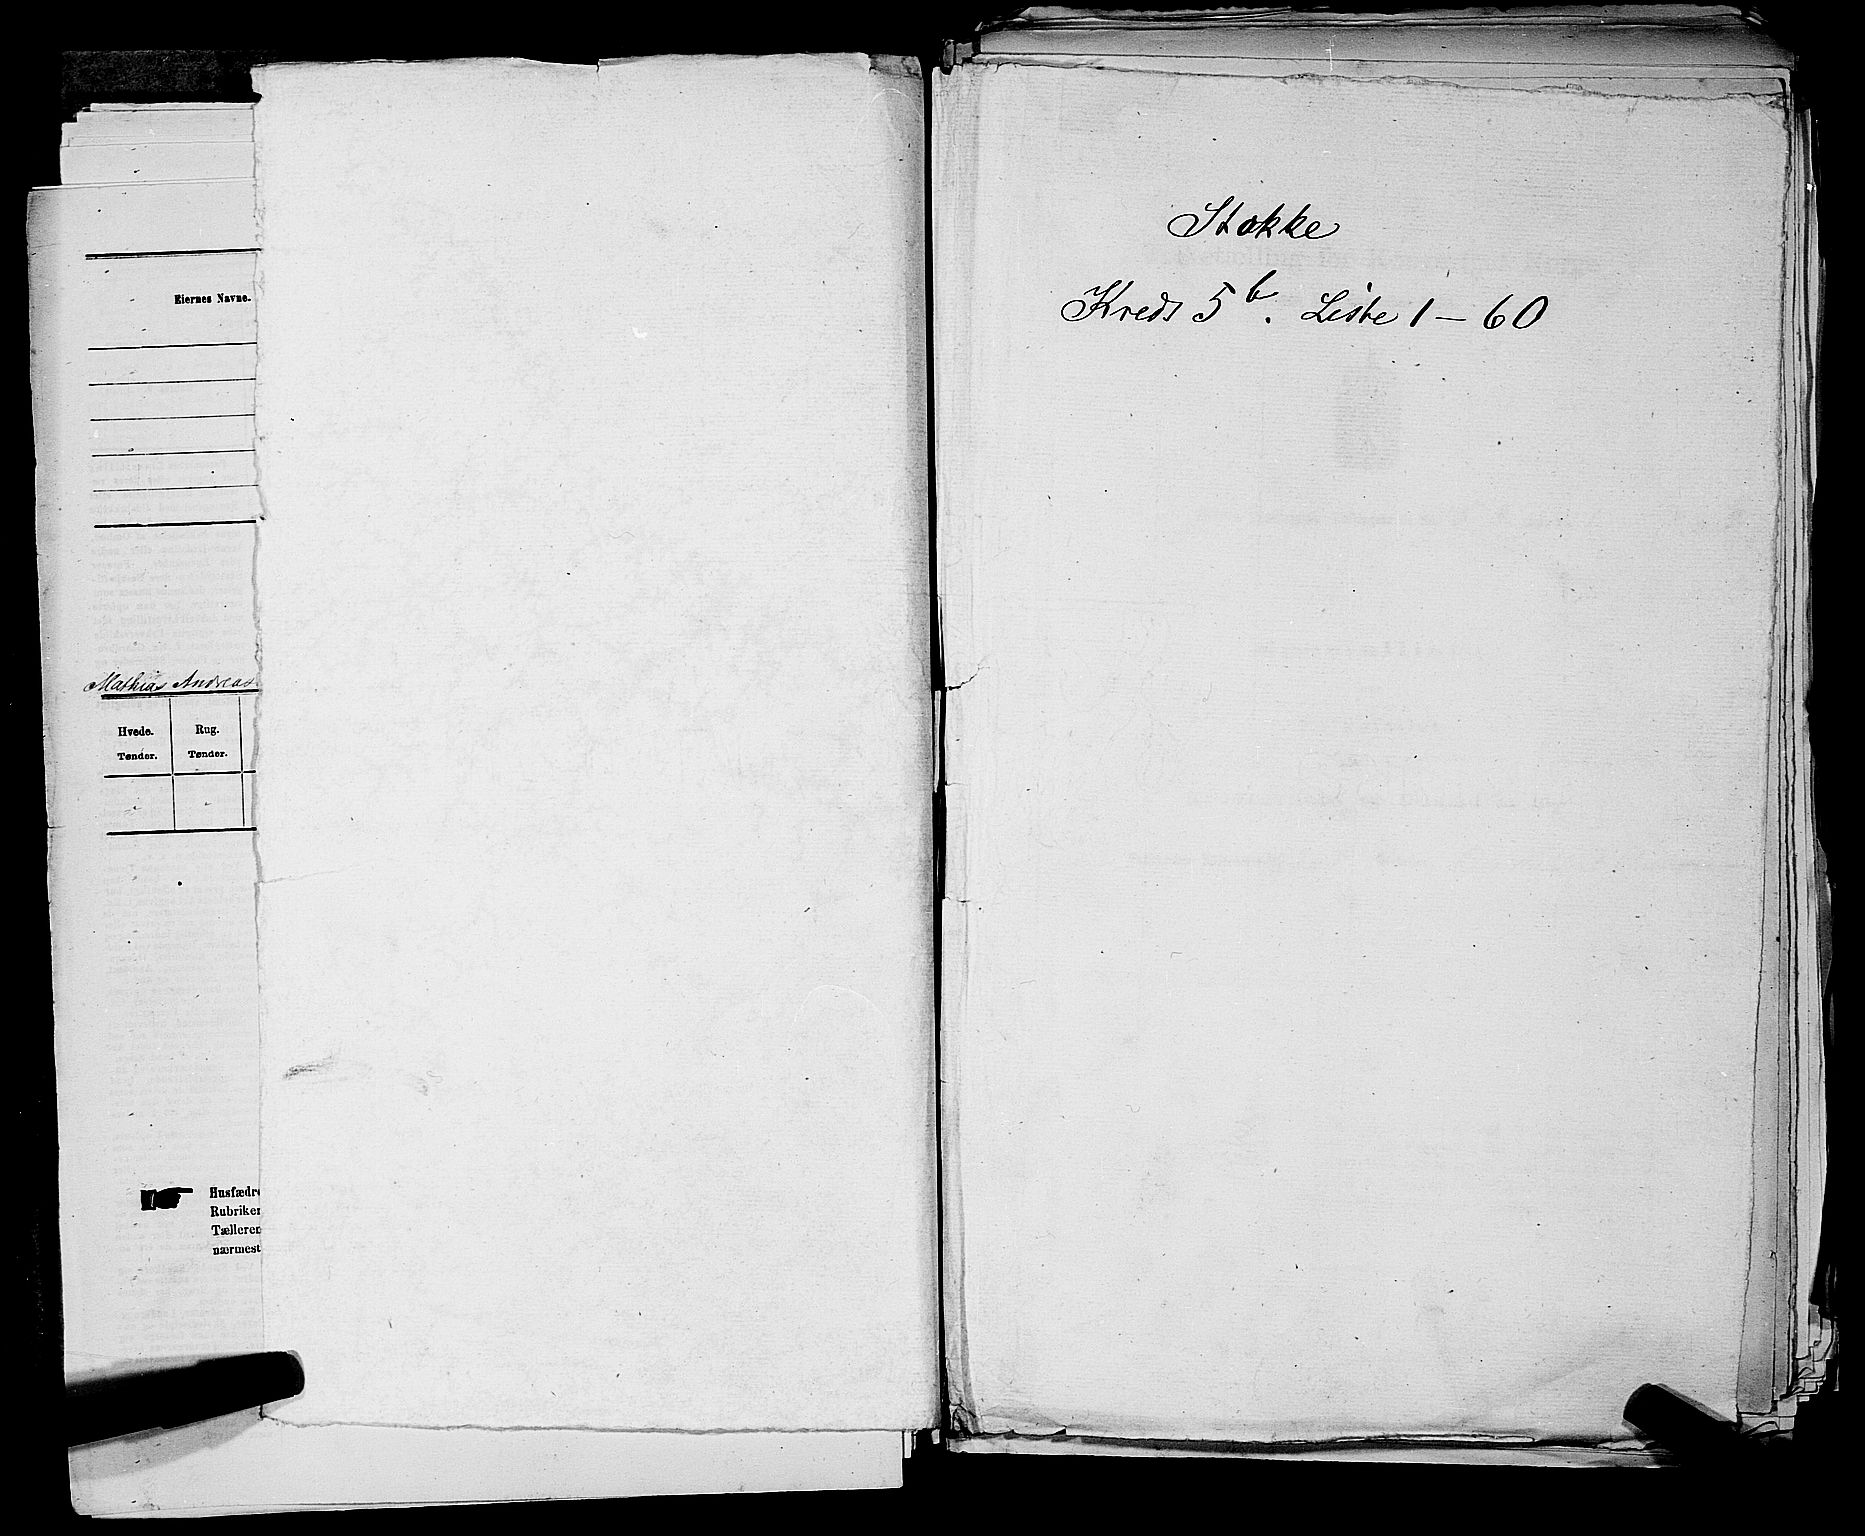 Eiernes Navne.
Mathias Andreas
Hvede. Rug.
Tønder. Tønder.
Husfædre
Rubriker
Tælleren
nærmest
Stokke
Kreds 5 b. Liste 1 — 60